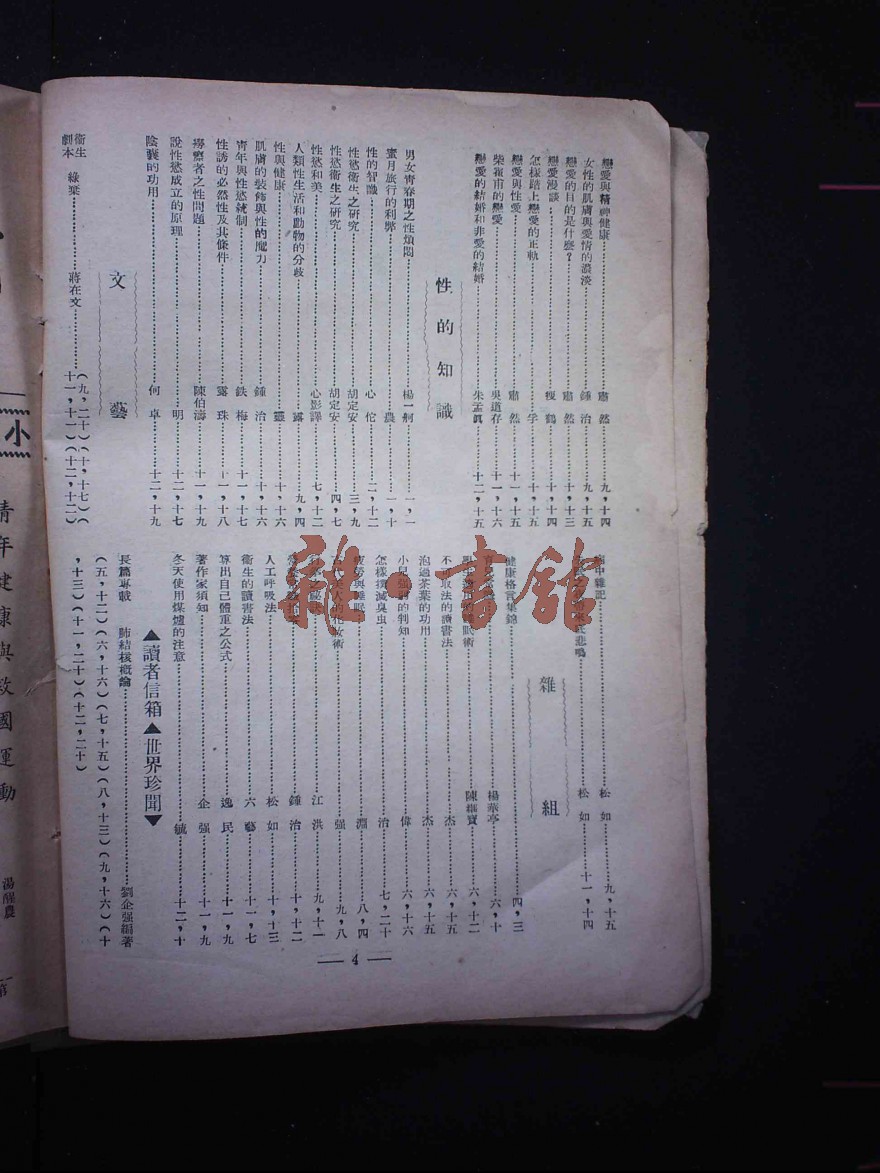 戀愛與精神健康 肅然 九，十四
女性的肌膚與愛情的濃淡 鍾治 九，十五
戀愛的目的是什麼？ 肅然 十，十三
戀愛漫談 稷鶴 十，十四
怎樣踏上戀愛的正軌 孚 十，十五
戀愛與性愛 肅然 十一，十五
柴霍甫的戀愛 吳道存 十一，十五
戀愛的結婚和非愛的結婚 朱孟眞 十二，十五
性的知識
男女青春期之性煩悶 楊一舸 一，一
蜜月旅行的利弊 農 一，十
性的智識 心佗 二，十二
性慾衛生之研究 胡定安 三，九
性慾衛生之研究 胡定安 四，七
性慾和美 心影譯 七，十二
人類性生活和動物的分歧 露 九，四
性與健康 靈 十，十六
肌膚的裝飾與性的魔力 鍾治 十，十六
青年與性慾統制 鉄梅 十一，十七
性誘的必然性及其條件 露珠 十一，十八
辱瘵者之性問題 陳伯濤 十一，十九
說性慾成立的原理 明 十二，十七
陰囊的功用 何卓 十二，十九
文藝
衛生劇本 綠葉 蔣在文 （九，二十）（十，十七）（十一，十一）（十二，十二）
病中雜記 松如 九，十五
悲鳴 松如 十一，十四
雜組
健康格言集錦 四，三
楊華亭 六，十
眠術 陳繼寶 六，十二
不取法的讀書法 杰 六，十五
泡過茶葉的功用 杰 六，十五
小兒強弱的判知 偉 六，十六
怎樣撲滅臭虫 治 七，二十
疲勞與睡眠 淵 八，四
人的化妝術 强 九，八
江洪 九，十一
鍾治 十，十二
人工呼吸法 松如 十，十三
衛生的讀書法 六藝 十一，七
算出自己體重之公式 逸民 十一，九
著作家須知 企强 十一，九
冬天使用煤爐的注意 毓 十二，十
▲讀者信箱▲世界珍聞▼
長篇專載 肺結核概論 劉企强編著
（五，十二）（六，十六）（七，十五）（八，十三）（九，十六）（十
，十三）（十一，二十）（十二，二十）
— 4 —
小
青年健康與救國運動
湯醒農
雅·書館